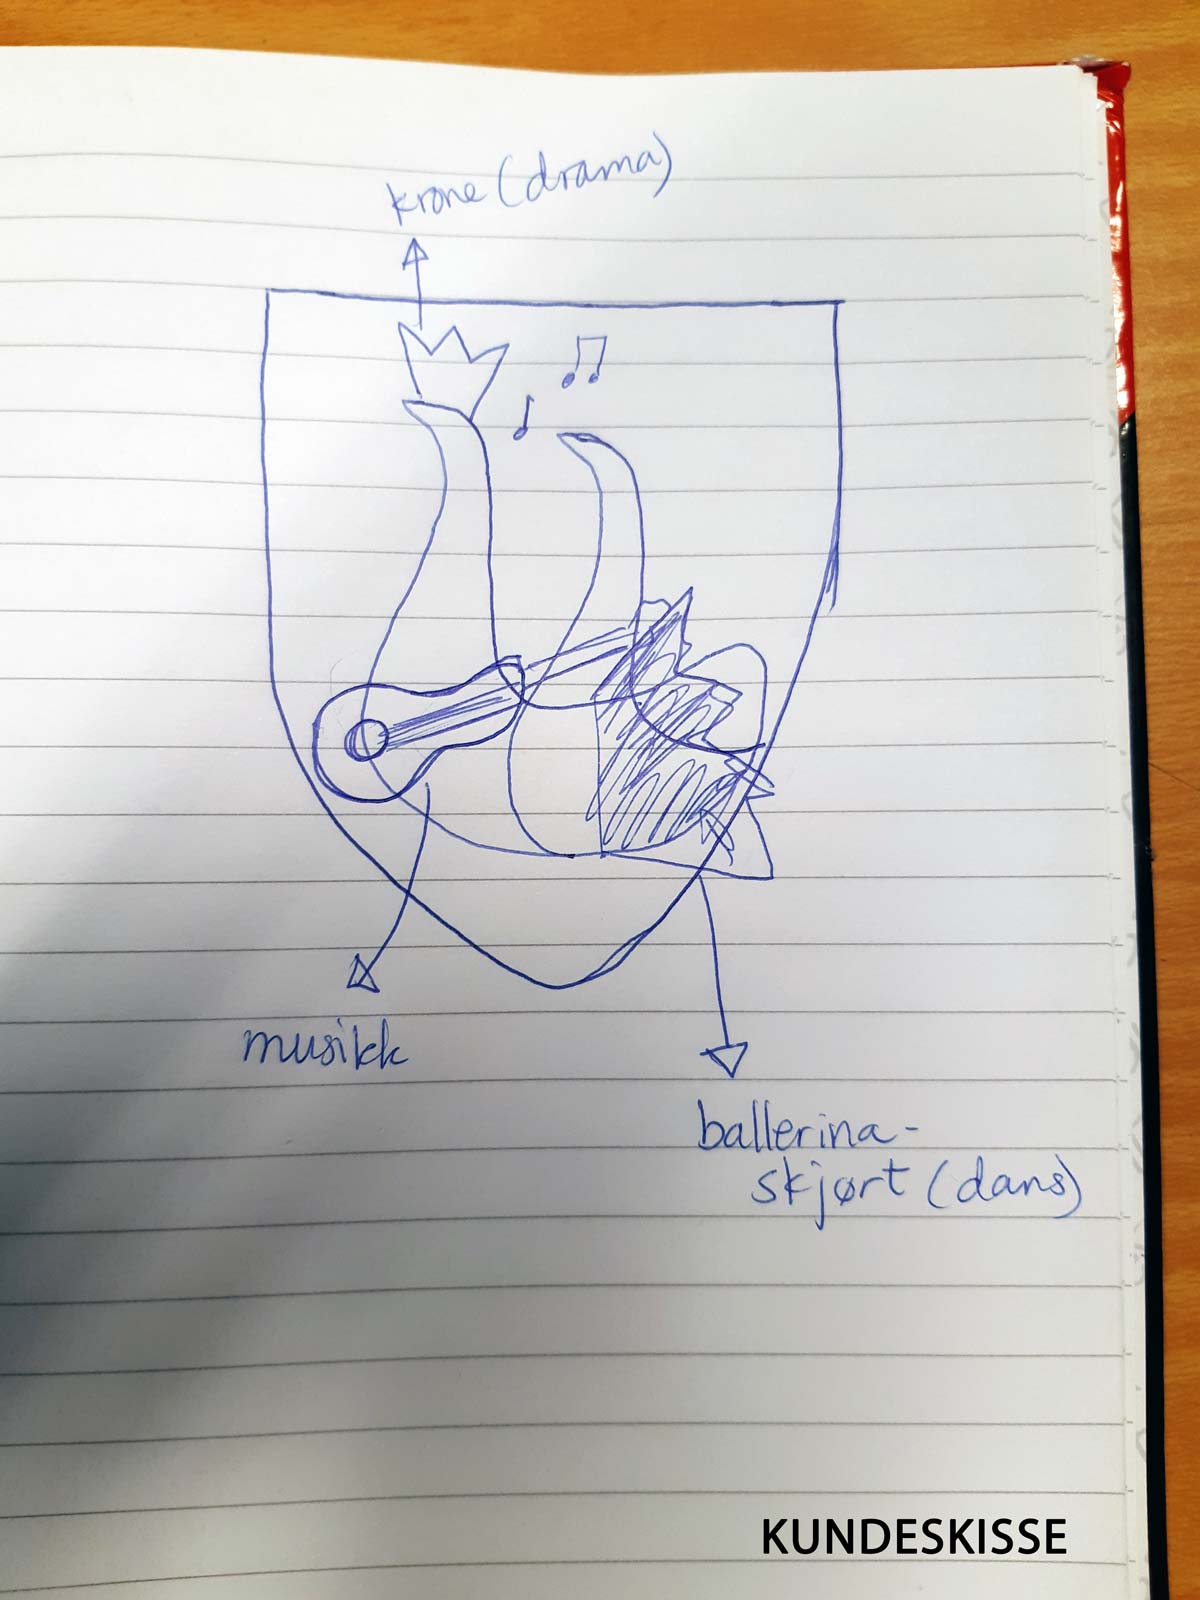 krone (drama)
musikk
ballerina-
skjørt (dans)
KUNDESKISSE